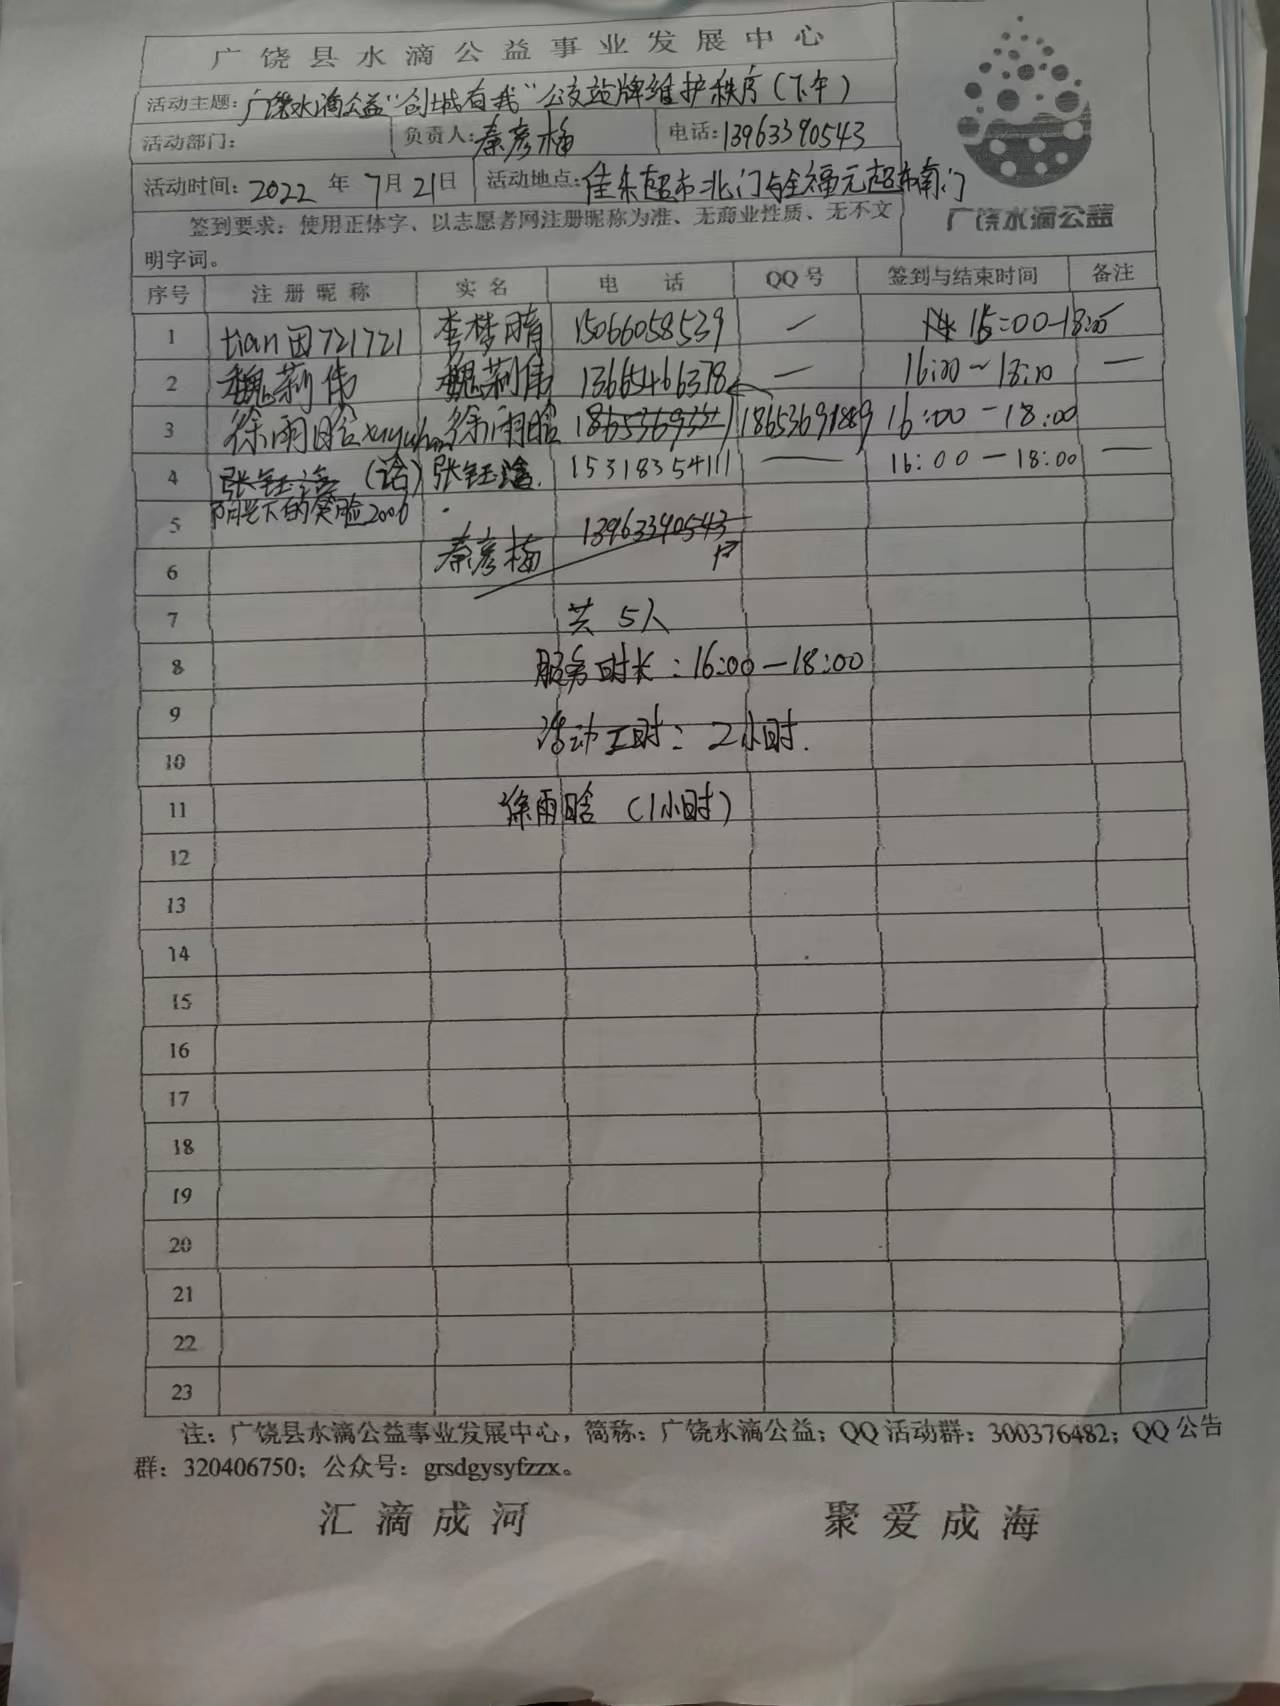 广饶县水滴公益事业发展中心
活动主题：广饶水滴公益“创城有我”公交站牌维护秩序（下午）
活动部门： 负责人：秦彦梅 电话：13963390543
活动时间：2022年7月21日 活动地点：佳乐超市北门与全福元超市南门
签到要求：使用正体字、以志愿者网注册昵称为准、无商业性质、无不文
明字词。
广饶水滴公益
序号 注册昵称 实名 电话 QQ号 签到与结束时间 备注
1 tian田721721 李梦晴 15066058539 — 15:00-18:00
2 魏莉伟 魏莉伟 13665466378 — 16:00~18:00 —
3 徐雨晗xuyuhan 徐雨晗 18653691889 16:00-18:00
4 张钰涵（涵） 张钰涵. 15318354111 — 16:00-18:00 —
5 阳光下的笑脸2006
6 秦彦梅 13963390543
7 共5人
8 服务时长：16:00-18:00
9
10 活动工时：2小时.
11 徐雨晗（1小时）
12
13
14
15
16
17
18
19
20
21
22
23
注：广饶县水滴公益事业发展中心，简称：广饶水滴公益；QQ活动群：300376482；QQ公告
群：320406750；公众号：grsdgysyfzzx。
汇滴成河 聚爱成海